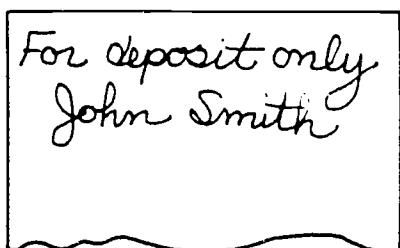 For deposit only
John Smith